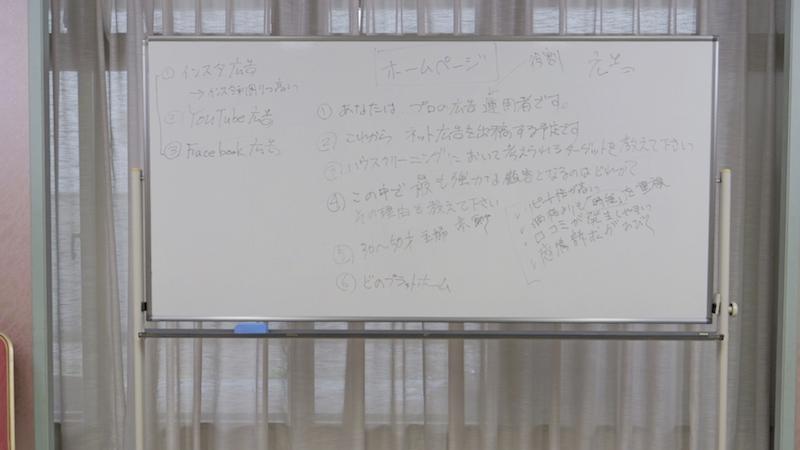 ① インスタ広告
② YouTube広告
③ Facebook広告
ホームページ
役割
広告
① あなたは プロの広告運用者です。
② これから ネット広告を出稿する予定です
③ ハウスクリーニングにおいて考えられるターゲットを教えて下さい
④ この中で最も強力な顧客となるのはどれか?
その理由も教えて下さい
⑤ 30〜40才 主婦
⑥ どのプラットホーム
リピート性が高い
価格よりも「時短」を重視
口コミが発生しやすい
感情訴求が